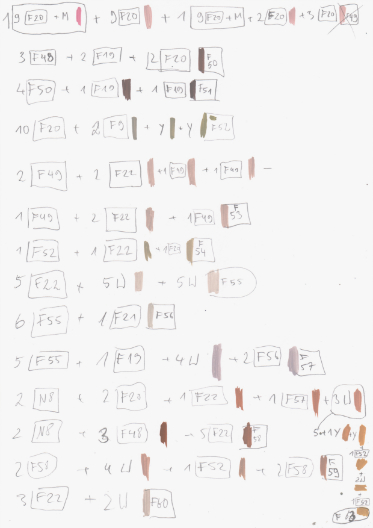 19 F20 + M + 9 F20 + 1 9 F20 + M + 2 F20 + 3 F20 F49
3 F48 + 2 F19 + 2 F20 F50
4 F50 + 1 F19 + 1 F19 F51
10 F20 + 2 F9 + Y + Y F52
2 F49 + 2 F22 + 1 F49 + 1 F49 -
1 F49 + 2 F22 + 1 F49 F53
1 F52 + 1 F22 + 1 F21 F54
5 F22 + 5W + 5W F55
6 F55 + 1 F21 F56
5 F55 + 1 F19 + 4W + 2 F56 F57
2 N8 + 2 F20 + 1 F22 + 1 F57 + 3W
2 N8 + 3 F48 - 5 F22 F58 5 +1Y +Y
2 F58 + 4W + 1 F52 + 2 F58 F59 +1 F52 + 2W + 1 F52
3 F22 + 2W F60 F63